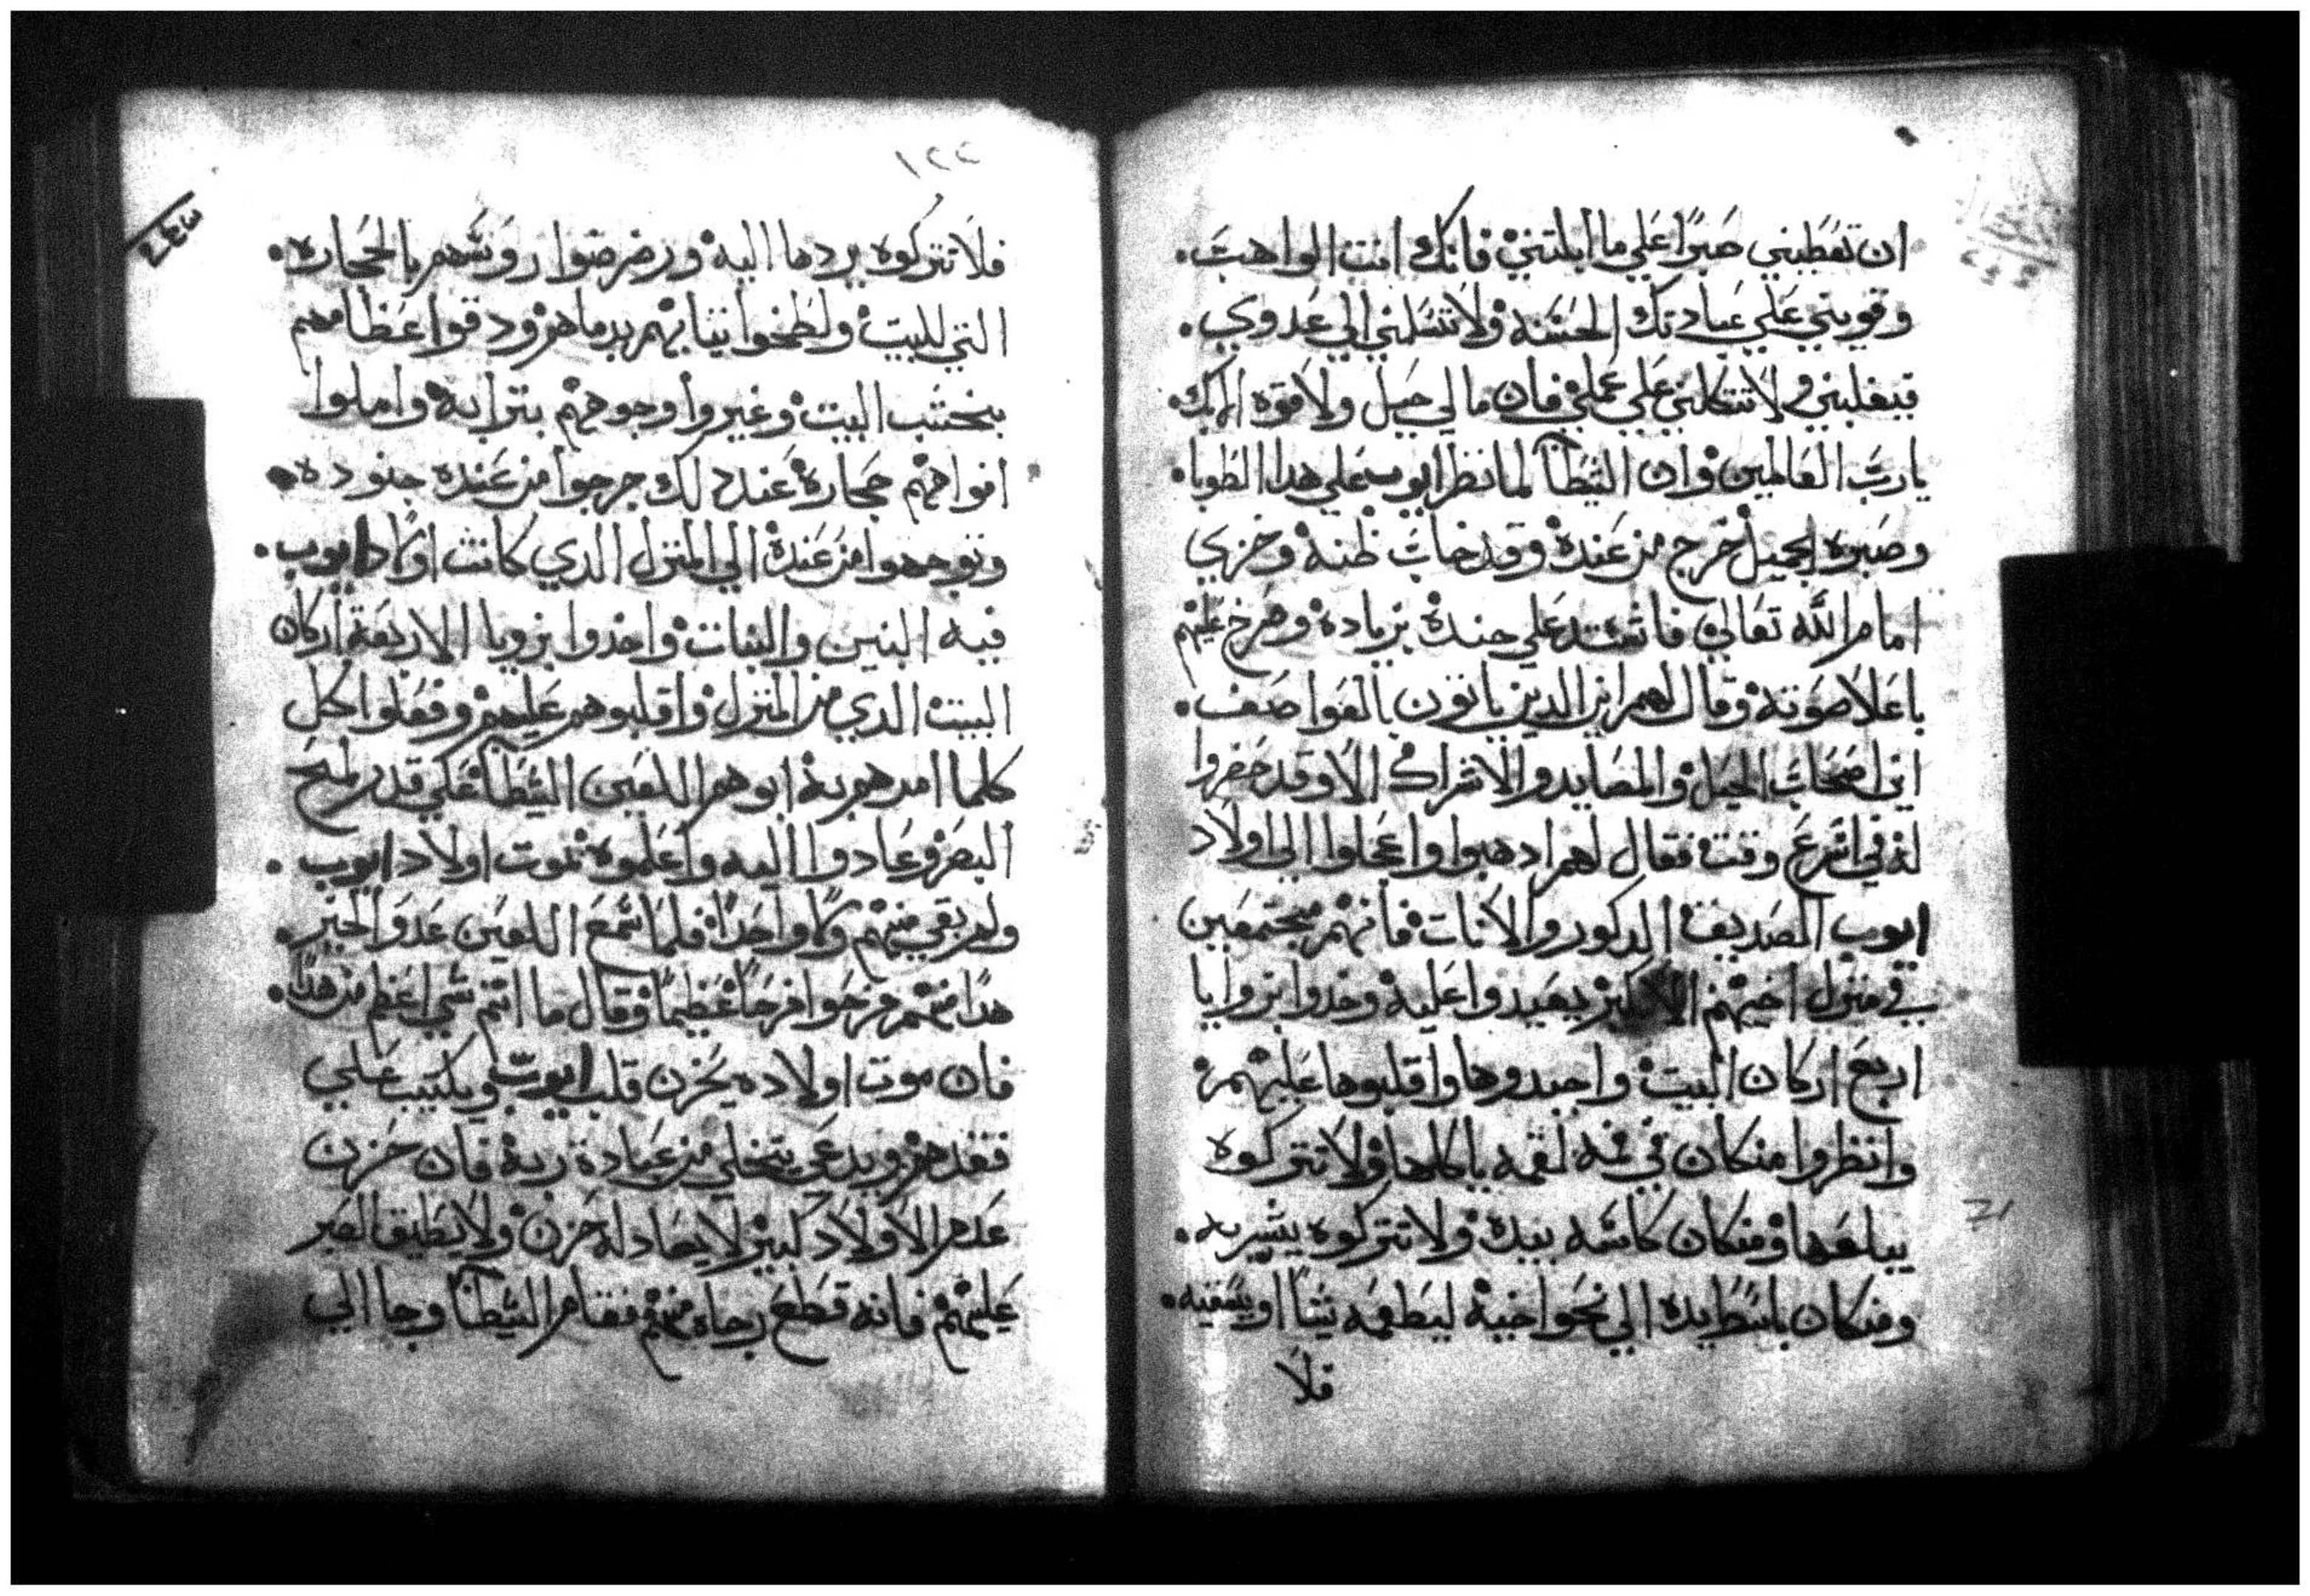 ان تعطيني صبرًا علي ما ابليتني فانك انت الواهب.
وقويني علي عبادتك الحسنه ولا تسلمني الي عدوي.
فيغلبني ولا تتكلني علي عملي فان ما لي حيل ولا قوه الا بك.
يا رب العالمين وان الشيطان لما نظر ايوب علي هدا الطوبا.
وصبره الجميل خرج من عنده وقد خاب ظنه وخزي
امام الله تعالي فاشتد علي جنده بزياده وصرخ عليهم
باعلا صوته وقال لهم اين الدين ياتون بالعواصف.
اين اصحاب الحيل والمصايد والاشراك الا وقد حضروا
لة في اسرع وقت فقال لهم ادهبوا واعجلوا الي اولاد
ايوب الصديق الدكور والانات فانهم مجتمعين
في منزل اخيهم الاكبر يعيدوا عليه وخدوا بزوايا
اربع اركان البيت واجبدوها واقلبوها عليهم
وانظروا منكان في فمه لقمه ياكلها ولا تتركوه
يبلعها ومنكان كاسه بيبك ولا تتركوه يشربه.
ومنكان باسط يده الي نحو اخيه ليطعمه شيًا او يسقيه.
فلا
١٢٤
فلا تتركوه يردها اليه ورضرضوا روسهم بالحجاره.
التي للبيت ولطخوا ثيابهم بدماهم ودقوا عظامهم
بخشب البيت وغيروا وجوههم بترابه واملوا
افواههم حجاره عند دلك خرجوا من عنده جنوده
وتوجهوا من عنده الي المنزل الدي كانت اولاد ايوب.
فيه البنين والبنات واخدوا بزويا الاربعة اركان
البيت الدي من المنزل واقلبوهم عليهم وفعلوا كل
كلما امرهم به ابوهم اللعين الشيطان علي قدر لمح
البصر وعادوا اليه واعلموه بموت اولاد ايوب.
ولم بقي منهم ولا واحدًا فلما سمع اللعين عدو الخير.
هدا منهم فرحوا فرحًا عظيمًا وقال ما انتم شي اعظم من هدا.
فان موت اولاده يحزن قلب ايوب ويكتيب علي
فقدهم ويدعي يتخلي من عبادة ربه فان حزن
عدم الاولاد كبير لا يعادله حزن ولا يطيق الصبر
عليهم فانه قطع رجاه منهم فقام الشيطان وجا الي